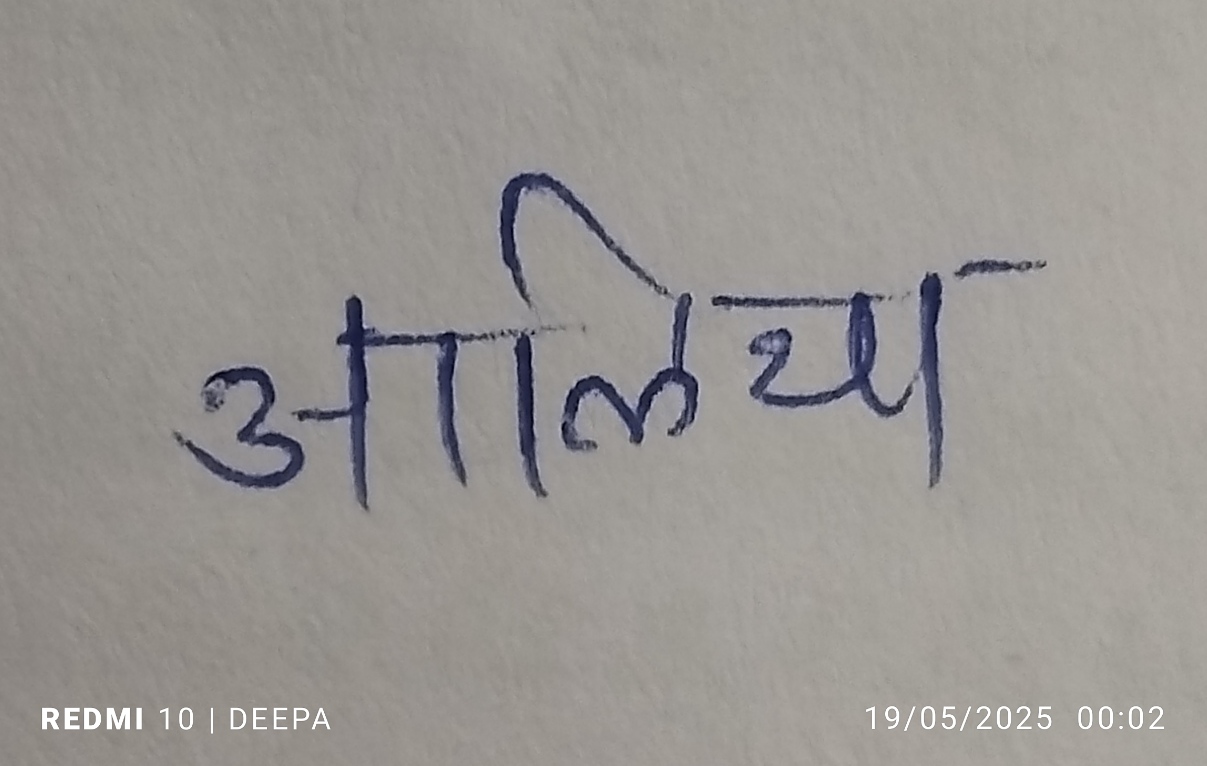 आलिया
REDMI 10 | DEEPA 19/05/2025 00:02